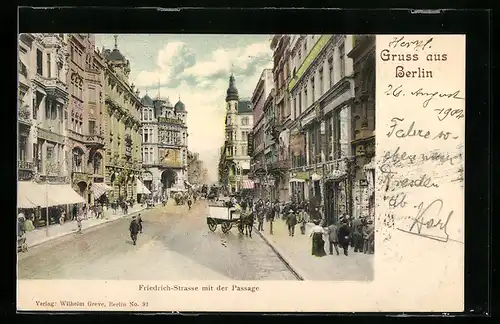 Gruss aus
Berlin
26. August
1902
Fahre so
eben nach
Dresden
ab
Karl
Friedrich-Strasse mit der Passage
Verlag: Wilhelm Greve, Berlin No. 91